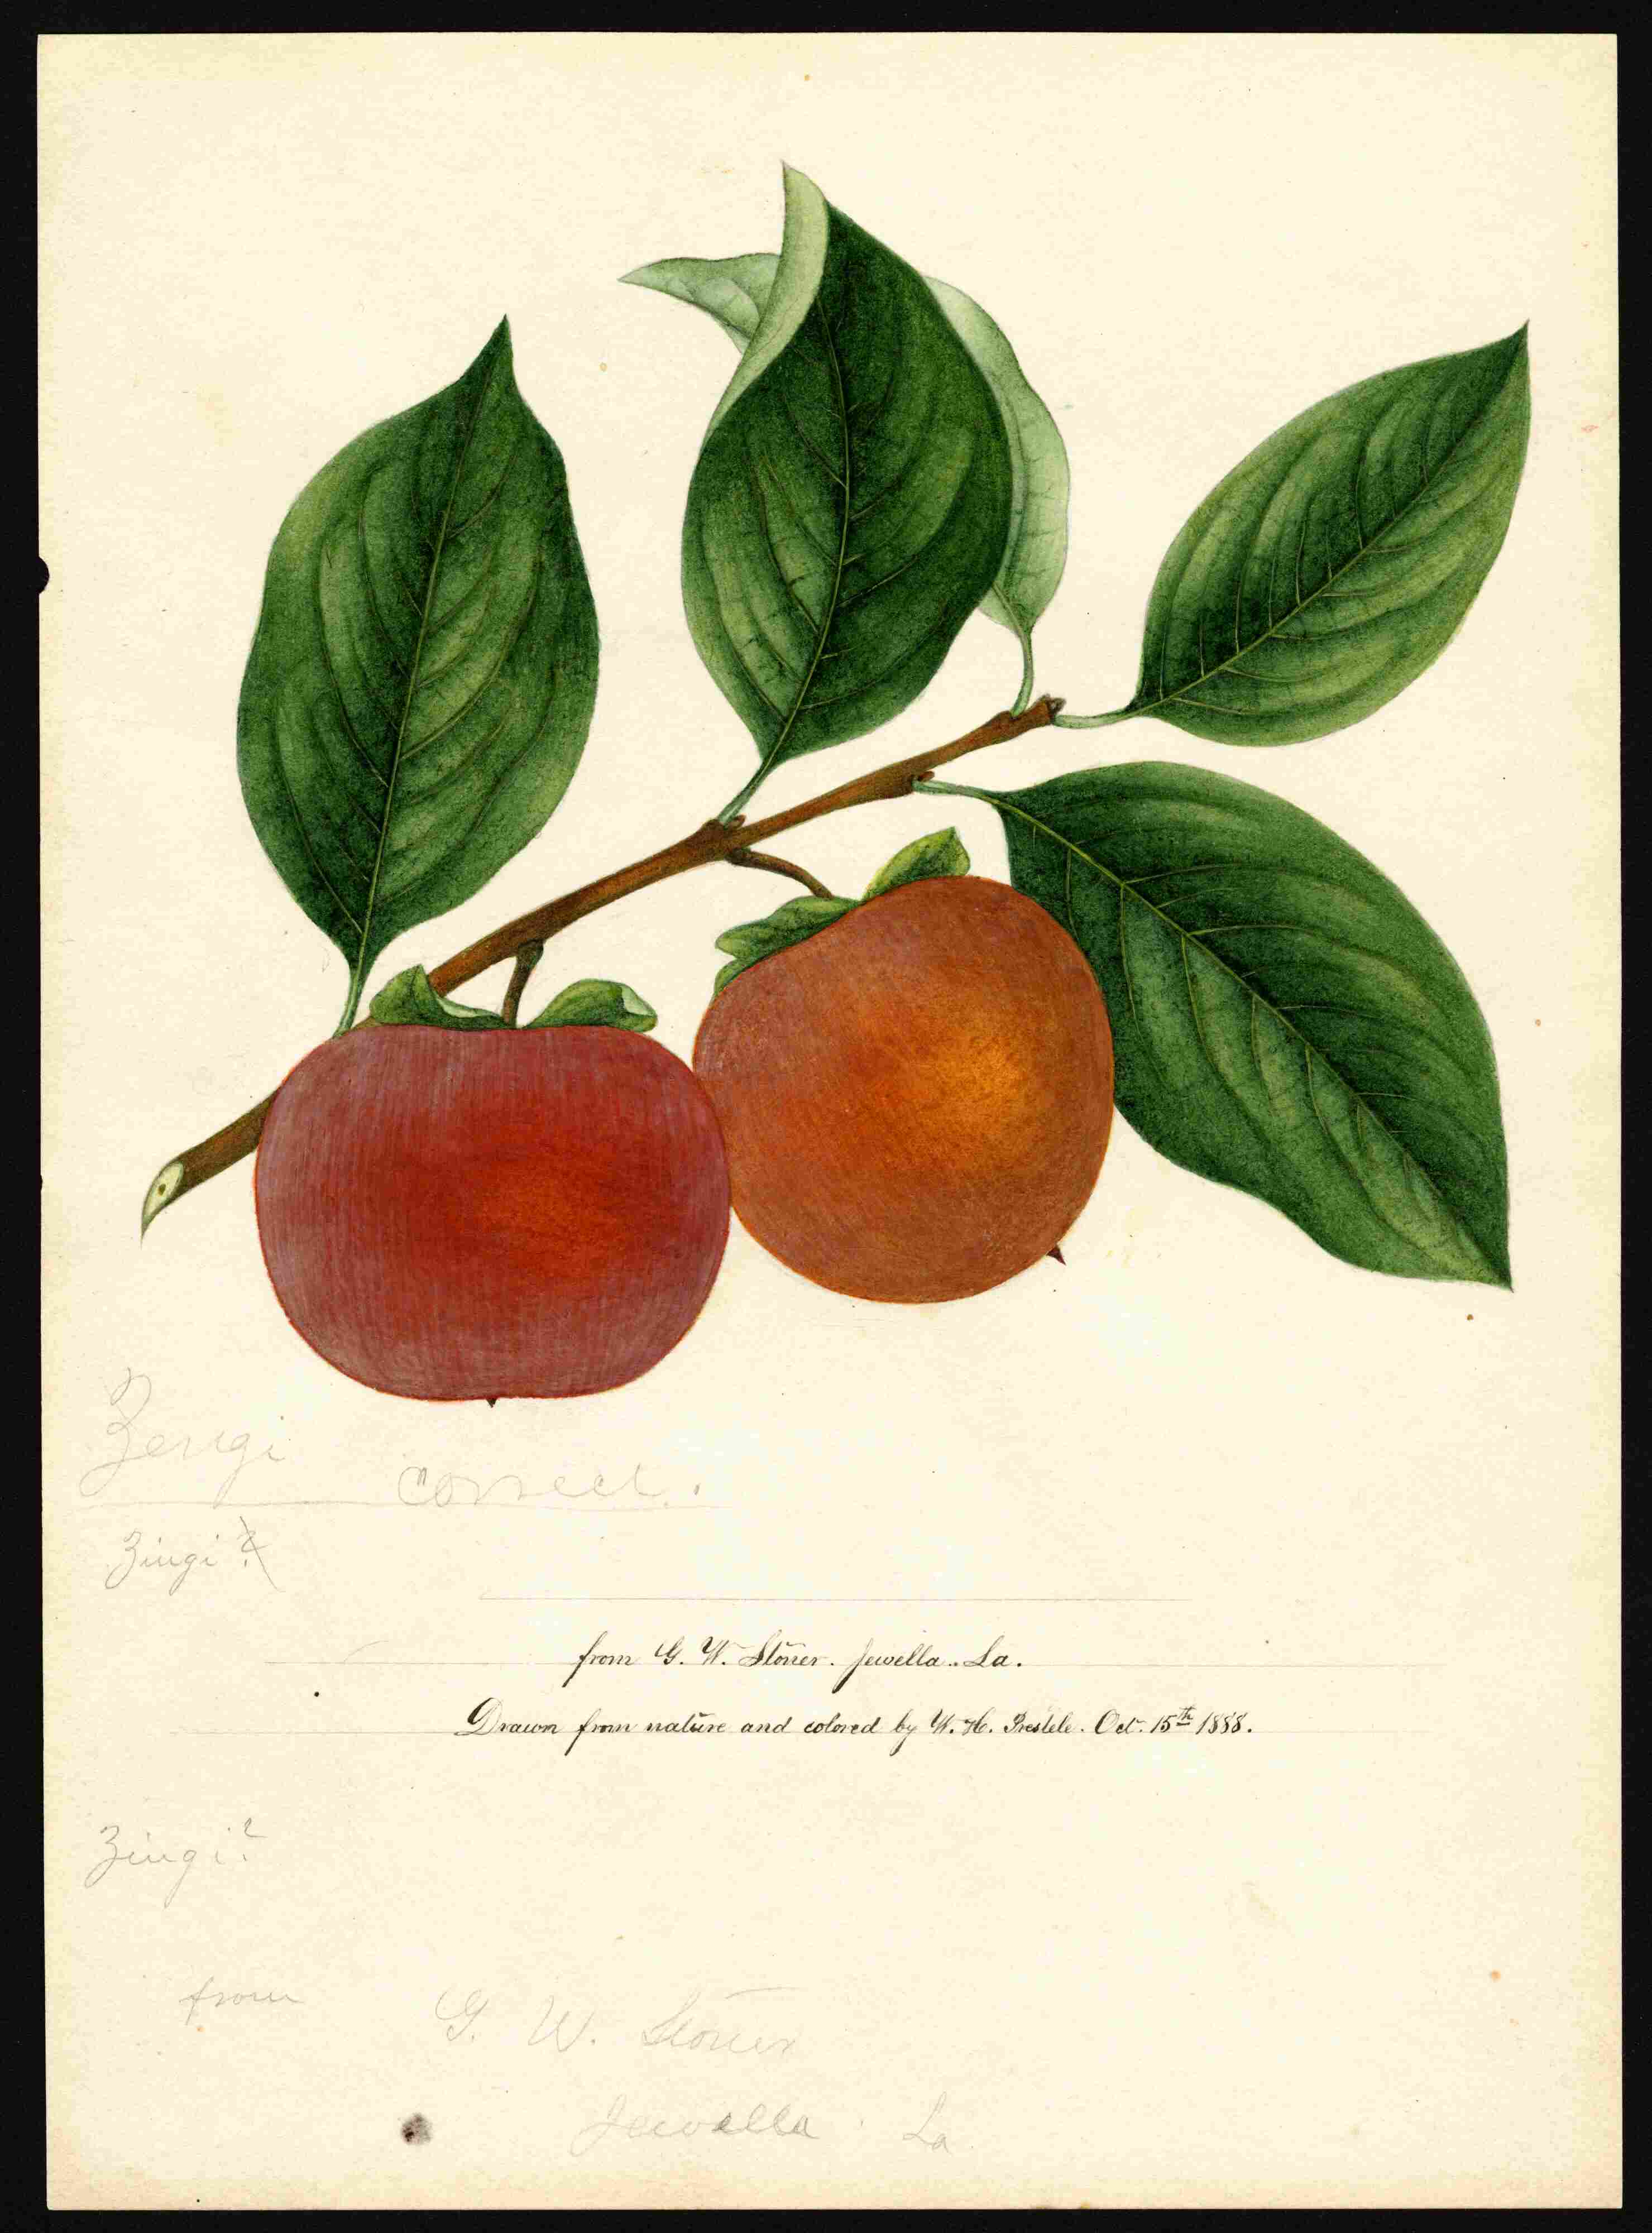 Zengi correct.
Zingi ?
from G. W. Stoner. Jewella. La.
Drawn from nature and colored by W. H. Prestele. Oct. 15th 1888.
Zingi?
from G. W. Stoner
Jewella. La